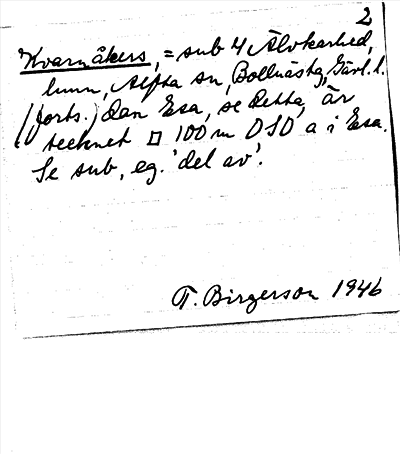 2
Kvarnåkers, = sub 4 Älvkarhed,
hmn, Alfta sn, Bollnäs tg, Gävl. l.
(forts.) den Esa, se detta, är
tecknet □ 100 m OSO a i Esa.
Se sub, eg. 'del av'.
T. Birgerson 1946